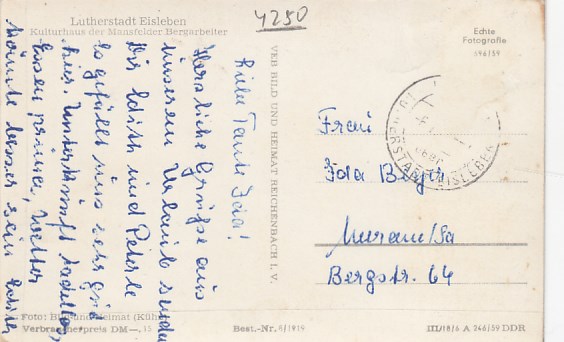 Lutherstadt Eisleben
Kulturhaus der Mansfelder Bergarbeiter
4250
Echte
Fotografie
496/59
Liebe Tante Ida!
Herzliche Grüße aus
unserem Urlaub senden
Dir Edith und Peterle
Es gefällt uns sehr gut
hier. Unterkunft tadellos,
Essen prima, Wetter
könnte besser sein
VEB BILD UND HEIMAT REICHENBACH I. V.
LUTHERSTADT EISLEBEN
Frau
Ida Beyer
Meerane/Sa
Bergstr. 64
Foto: Bild und Heimat (Kühn)
Verbraucherpreis DM —.15
Best.-Nr. 8/1919
III/18/6 A 246/59 DDR